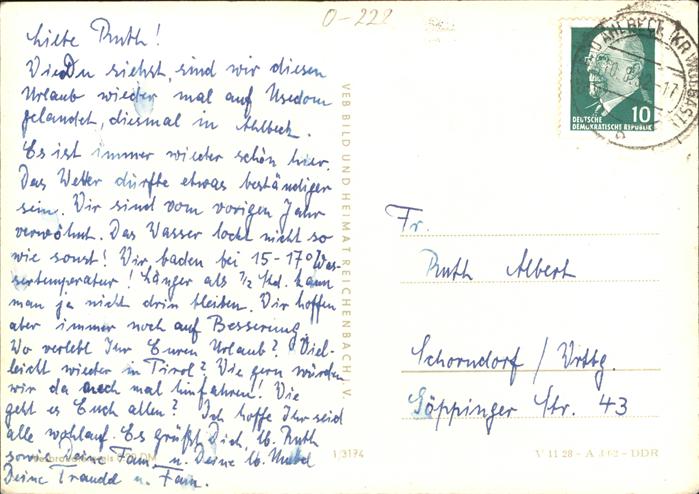 0-222
Liebe Ruth!
Wie Du siehst, sind wir diesen
Urlaub wieder mal auf Usedom
gelandet, diesmal in Ahlbeck.
Es ist immer wieder schön hier.
Das Wetter dürfte etwas beständiger
sein. Wir sind vom vorigen Jahr
verwöhnt. Das Wasser lockt nicht so
wie sonst! Wir baden bei 15-17° Was-
sertemperatur! Länger als 1/2 Std. kann
man ja nicht drin bleiben. Wir hoffen
aber immer noch auf Besserung.
Wo verlebt Ihr Euren Urlaub? Viel-
leicht wieder in Tirol? Wie gern würden
wir da auch mal hinfahren! Wie
geht es Euch allen? Ich hoffe Ihr seid
alle wohlauf. Es grüßt Dich, lb. Ruth
sowie Deine Fam. u. Deine lb.
Deine Traudel u. Fam.
VEB BILD UND HEIMAT REICHENBACH I. V.
1/3174
DEUTSCHE
DEMOKRATISCHE REPUBLIK
10
AHLBECK
Fr.
Ruth Albert
Schorndorf / Wrttg.
Göppinger Str. 43
V 11 28 - A - DDR